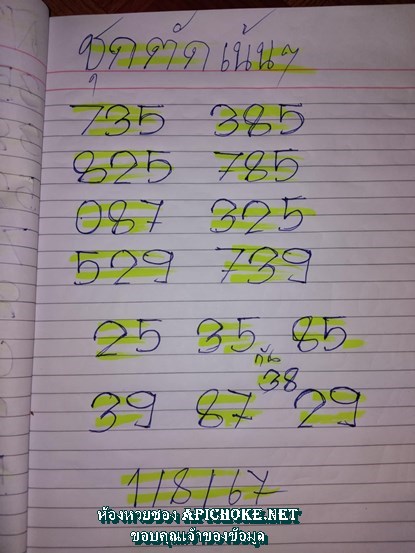 ชุดตัดเน้นๆ
735 385
825 785
087 325
529 739
25 35 85
กัน
38
39 87 29
1/8/67
ห้องหวยซอง APICHOKE.NET
ขอบคุณเจ้าของข้อมูล